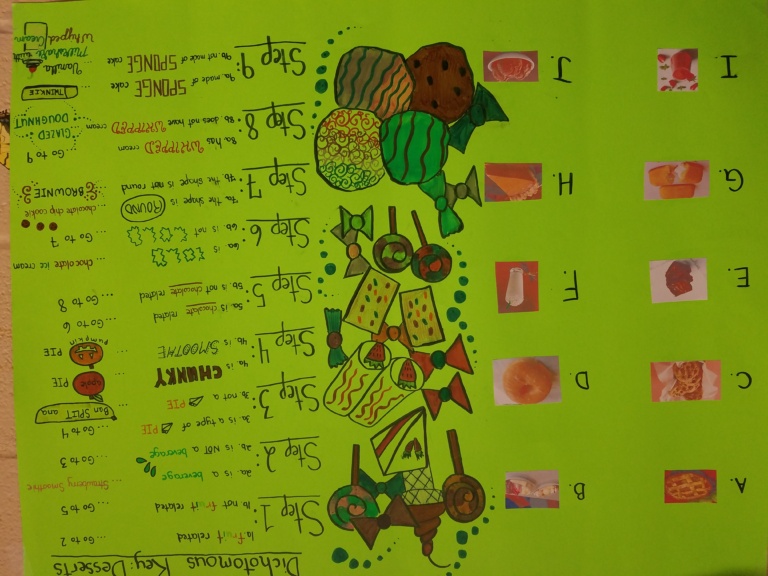 Dichotomous Key: Desserts
Step 1:
1a fruit related ... Go to 2
1b not fruit related ... Go to 5
Step 2:
2a. is a beverage ... Strawberry Smoothie
2b. is NOT a beverage ... Go to 3
Step 3:
3a. is a type of PIE ... Go to 4
3b. not a PIE ... Ban SPLIT ana
Step 4:
4a is CHUNKY ... apple PIE
4b. is SMOOTHE ... pumpkin PIE
Step 5:
5a. is chocolate related ... Go to 6
5b. is not chocolate related ... Go to 8
Step 6:
6a. is ... chocolate ice cream
6b. is not ... Go to 7
Step 7:
7a. the shape is ROUND ... chocolate chip cookie
7b. the shape is not round ... BROWNIE
Step 8:
8a. has WHIPPED cream ... Go to 9
8b. does not have WHIPPED cream ... GLAZED DOUGHNUT
Step 9:
9a. made of SPONGE cake ... TWINKIE
9b. not made of SPONGE cake ... Vanilla
Milkshake with
Whypped Cream
A.
B.
C.
D.
E.
F.
G.
H.
I.
J.